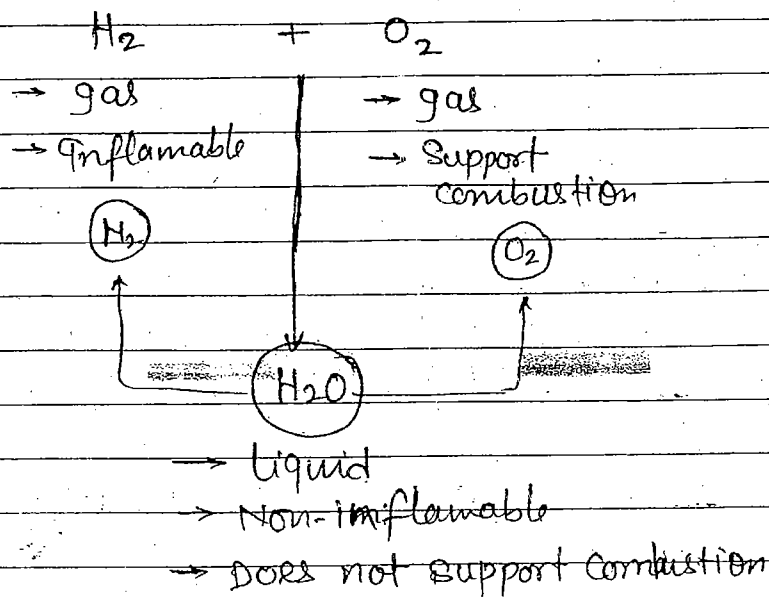 H2 + O2
→ gas → gas
→ Inflamable → Support
combustion
H2 O2
H2O
→ Liquid
→ Non-imiflamable
→ Does not support Combustion